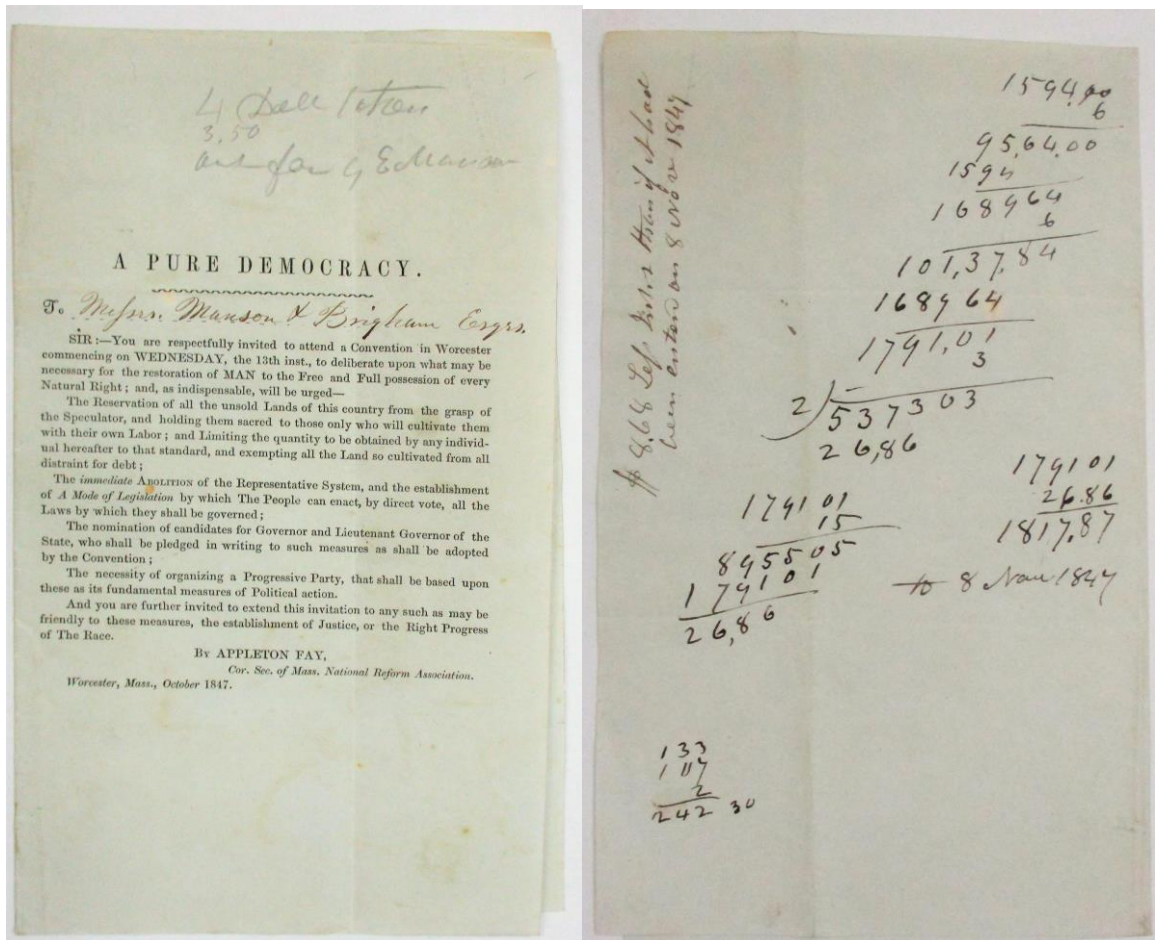 4 Doll
3,50
for G E Manson
A PURE DEMOCRACY.
To Messrs. Manson & Brigham Esqrs.
SIR :—You are respectfully invited to attend a Convention in Worcester
commencing on WEDNESDAY, the 13th inst., to deliberate upon what may be
necessary for the restoration of MAN to the Free and Full possession of every
Natural Right ; and, as indispensable, will be urged—
The Reservation of all the unsold Lands of this country from the grasp of
the Speculator, and holding them sacred to those only who will cultivate them
with their own Labor ; and Limiting the quantity to be obtained by any individ-
ual hereafter to that standard, and exempting all the Land so cultivated from all
distraint for debt ;
The immediate ABOLITION of the Representative System, and the establishment
of A Mode of Legislation by which The People can enact, by direct vote, all the
Laws by which they shall be governed ;
The nomination of candidates for Governor and Lieutenant Governor of the
State, who shall be pledged in writing to such measures as shall be adopted
by the Convention ;
The necessity of organizing a Progressive Party, that shall be based upon
these as its fundamental measures of Political action.
And you are further invited to extend this invitation to any such as may be
friendly to these measures, the establishment of Justice, or the Right Progress
of The Race.
BY APPLETON FAY,
Cor. Sec. of Mass. National Reform Association.
Worcester, Mass., October 1847.
$ 8,68 Less than if it had
been on 8 Nov 1847
1594,00
6
95,64.00
1594
168964
6
101,37,84
168964
1791,01
3
2)537303
26,86
179101
15
895505
179101
26,86
179101
26.86
1817,87
to 8 Nov 1847
133
107
2
242 30